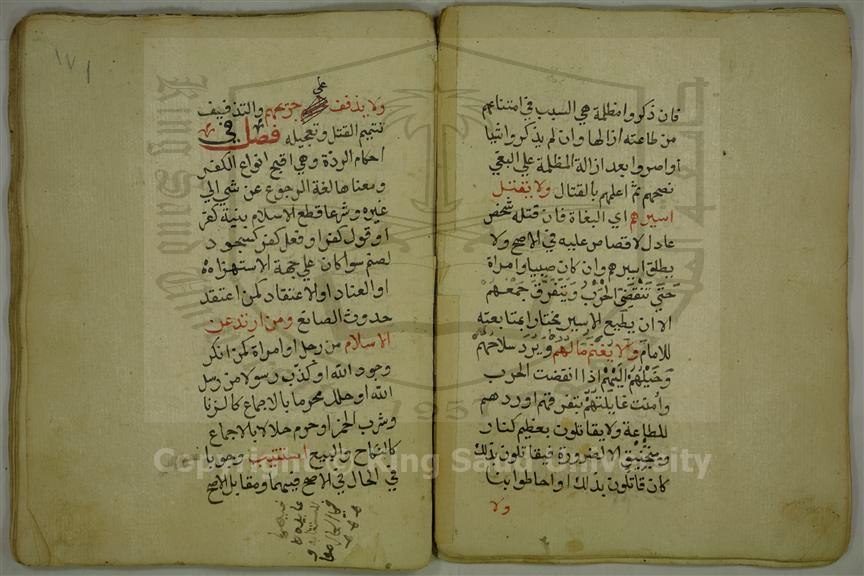 فان ذكروا مظلمة هي السبب في امتناعهم
من طاعته ازالها وان لم يذكروا شيا
أو اصروا بعد ازالة المظلمة علي البغي
نصحهم ثم اعلمهم بالقتال ولا يقتل
اسيرهم اي البغاة فان قتله شخص
عادل لا قصاص عليه في الاصح ولا
يطلق اسيرهم وان كان صبيا وامراة
حتي تنقضي الحرب ويتفرق جمعهم
الا ان يطيع الاسير مختارا بمتابعته
للامام ولا يغنم مالهم ويرد سلاحهم
وخيلهم اليهم اذا انقضت الحرب
وامنت غايلتهم بتفرقهم او ردهم
للطاعة ولا يقاتلون بعظيم كنار
ومنجنيق الا لضرورة فيقاتلون بذلك
كان قاتلون بذلك او احاطوا بنا
ولا
١٧١
ولا يذفف علي جريحهم والتذفيف
تتميم القتل وتعجيله فصل في
احكام الردة وهي اقبح انواع الكفر
ومعناها لغة الرجوع عن شي الي
غيره وشرعا قطع الاسلام بنية كفر
او قول كفر او فعل كفر كسجود
لصنم سوا كان علي جهة الاستهزاء
او العناد او الاعتقاد كمن اعتقد
حدوث الصانع ومن ارتد عن
الاسلام من رجل او امراة كمن انكر
وجود الله او كذب رسولا من رسل
الله او حلل محرما بالاجماع كالزنا
وشرب الخمر او حرم حلالا بالاجماع
كالنكاح والبيع استتيب وجوبا
في الحال في الاصح فيهما ومقابل الاصح
Copyright © King Saud University
King Saud University
1957